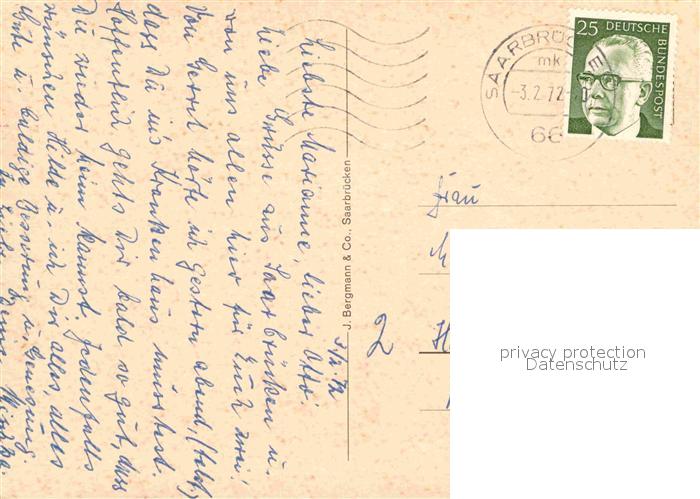 3/2.72
Liebste Marianne, lieber Otto!
Liebe Grüsse aus Saarbrücken u.
von uns allen hier für Euch zwei!
Von Gerret hörte ich gestern abend, (telef.)
dass Du ins Krankenhaus musstest.
Hoffentlich gehts Dir bald so gut, dass
Du wieder heim kannst. Jedenfalls
wünschen Hilde u. ich Dir alles, alles
Gute u. baldige Besserung u. Genesung.
In Liebe Deine
J. Bergmann & Co., Saarbrücken
SAARBRÜCKEN
mk
-3.2.72-
66
25 DEUTSCHE BUNDESPOST
Frau
2
privacy protection
Datenschutz